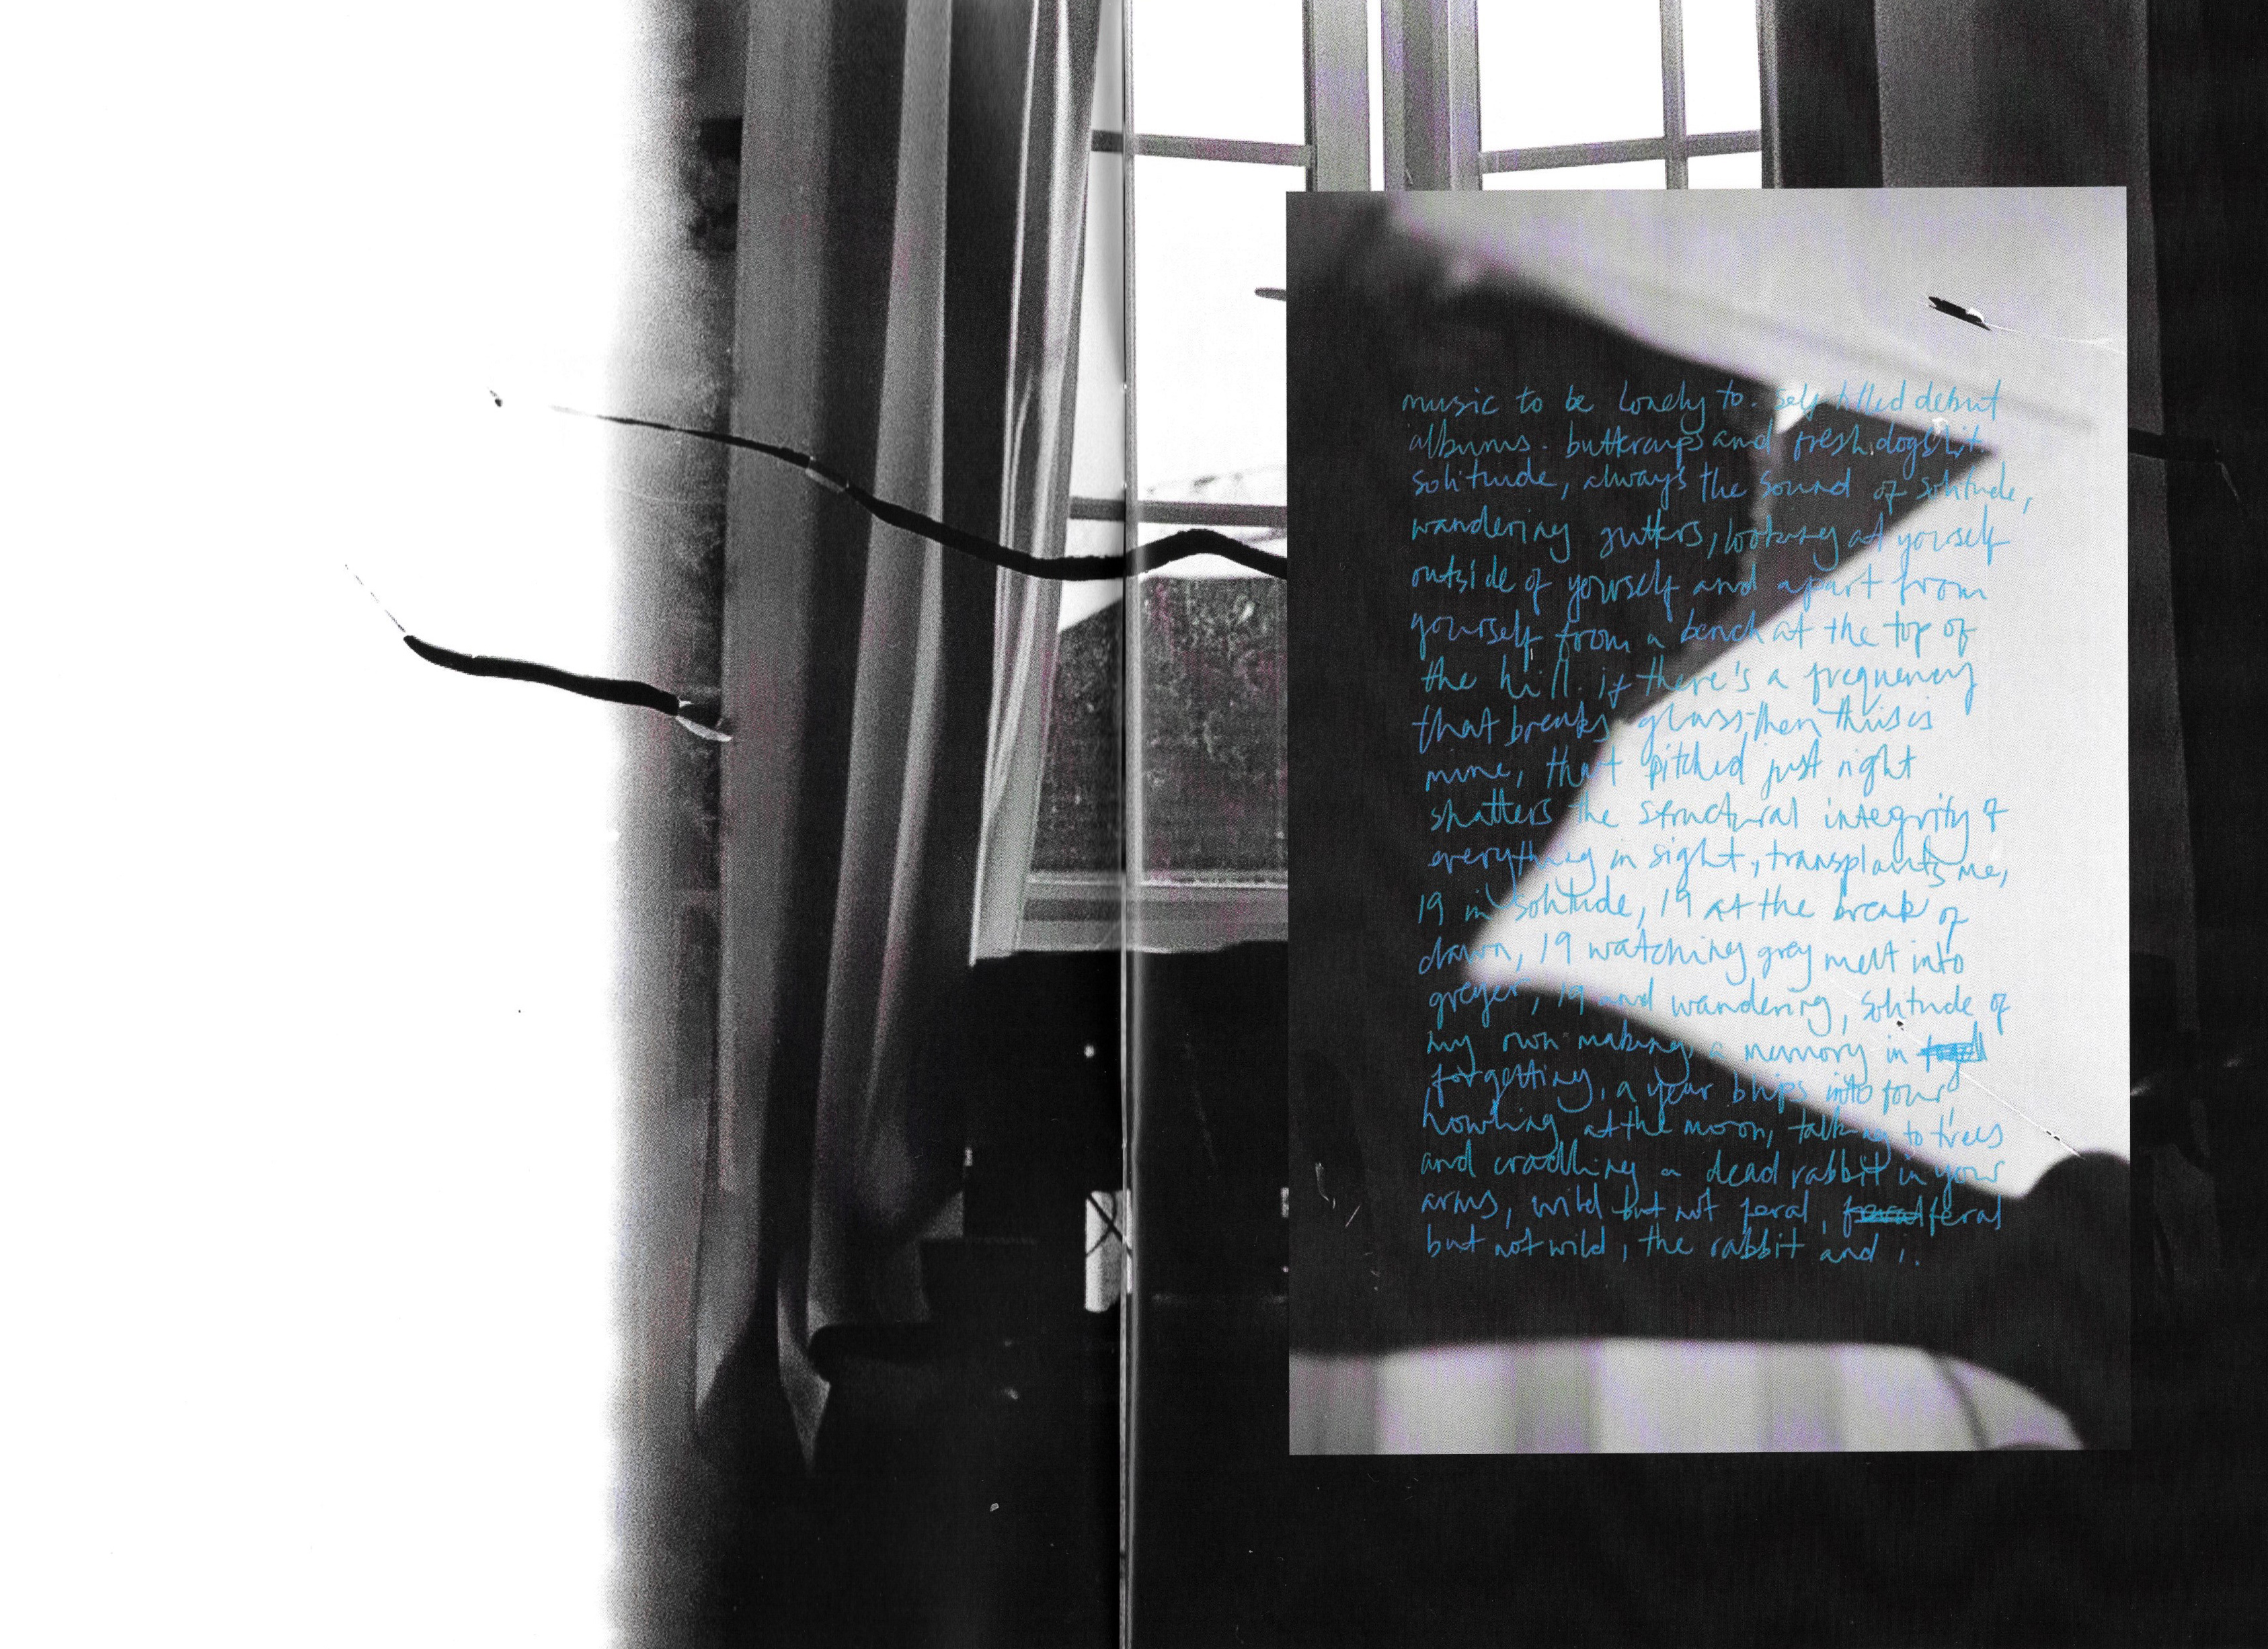 music to be lonely to. self titled debut
albums. buttercups and fresh dogshit
solitude, always the sound of solitude,
wandering gutters, looking at yourself
outside of yourself and apart from
yourself from a bench at the top of
the hill. if there's a frequency
that breaks glass then this is
mine, that pitched just right
shatters the structural integrity of
everything in sight, transplants me,
19 in solitude, 19 at the break of
dawn, 19 watching grey melt into
greyer, 19 and wandering, solitude of
my own making a memory in
forgetting, a year blips into four
howling at the moon, talking to trees
and cradling a dead rabbit in your
arms, wild but not feral, feral feral
but not wild, the rabbit and i.